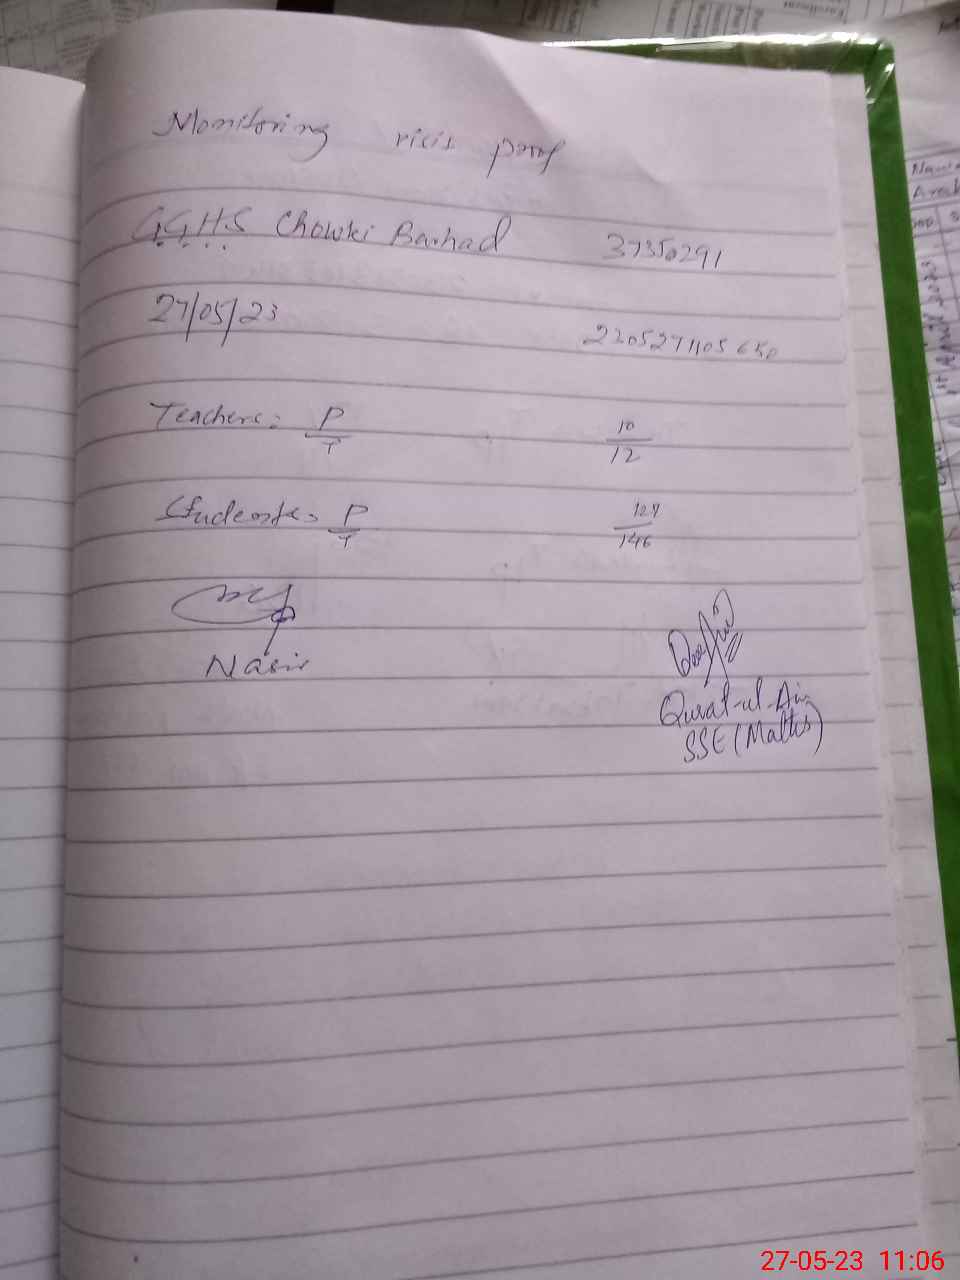 Monitoring visit proof
G.G.H.S Chowki Barhad 37350291
27/05/23 2205271105650
Teachers: P/T 10/12
Students: P/T 127/146
Nasir
Qurat-ul-Ain
SSE (Maths)
27-05-23 11:06